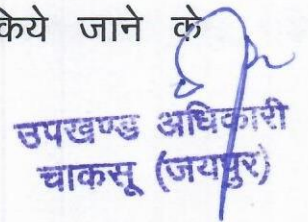 किये जाने के
उपखण्ड अधिकारी
चाकसू (जयपुर)